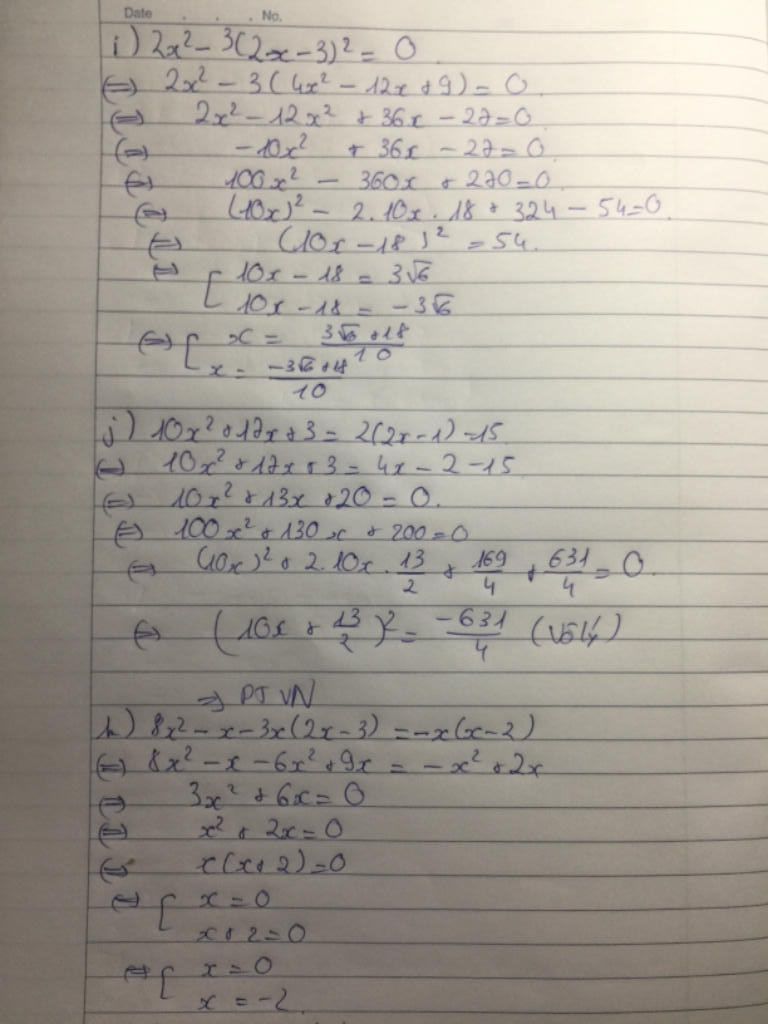 Date . . . No.
i) 2x² - 3(2x - 3)² = 0
⇔ 2x² - 3(4x² - 12x + 9) = 0
⇔ 2x² - 12x² + 36x - 27 = 0
⇔ -10x² + 36x - 27 = 0
⇔ 100x² - 360x + 270 = 0
⇔ (10x)² - 2.10x.18 + 324 - 54 = 0
⇔ (10x - 18)² = 54.
⇔ [ 10x - 18 = 3√6
10x - 18 = -3√6
⇔ [ x = (3√6 + 18)/10
x = (-3√6 + 18)/10
j) 10x² + 17x + 3 = 2(2x - 1) - 15
⇔ 10x² + 17x + 3 = 4x - 2 - 15
⇔ 10x² + 13x + 20 = 0.
⇔ 100x² + 130x + 200 = 0
⇔ (10x)² + 2.10x.13/2 + 169/4 + 631/4 = 0
⇔ (10x + 13/2)² = -631/4 (vô lý)
⇒ PT VN
k) 8x² - x - 3x(2x - 3) = -x(x - 2)
⇔ 8x² - x - 6x² + 9x = -x² + 2x
⇔ 3x² + 6x = 0
⇔ x² + 2x = 0
⇔ x(x + 2) = 0
⇔ [ x = 0
x + 2 = 0
⇔ [ x = 0
x = -2.